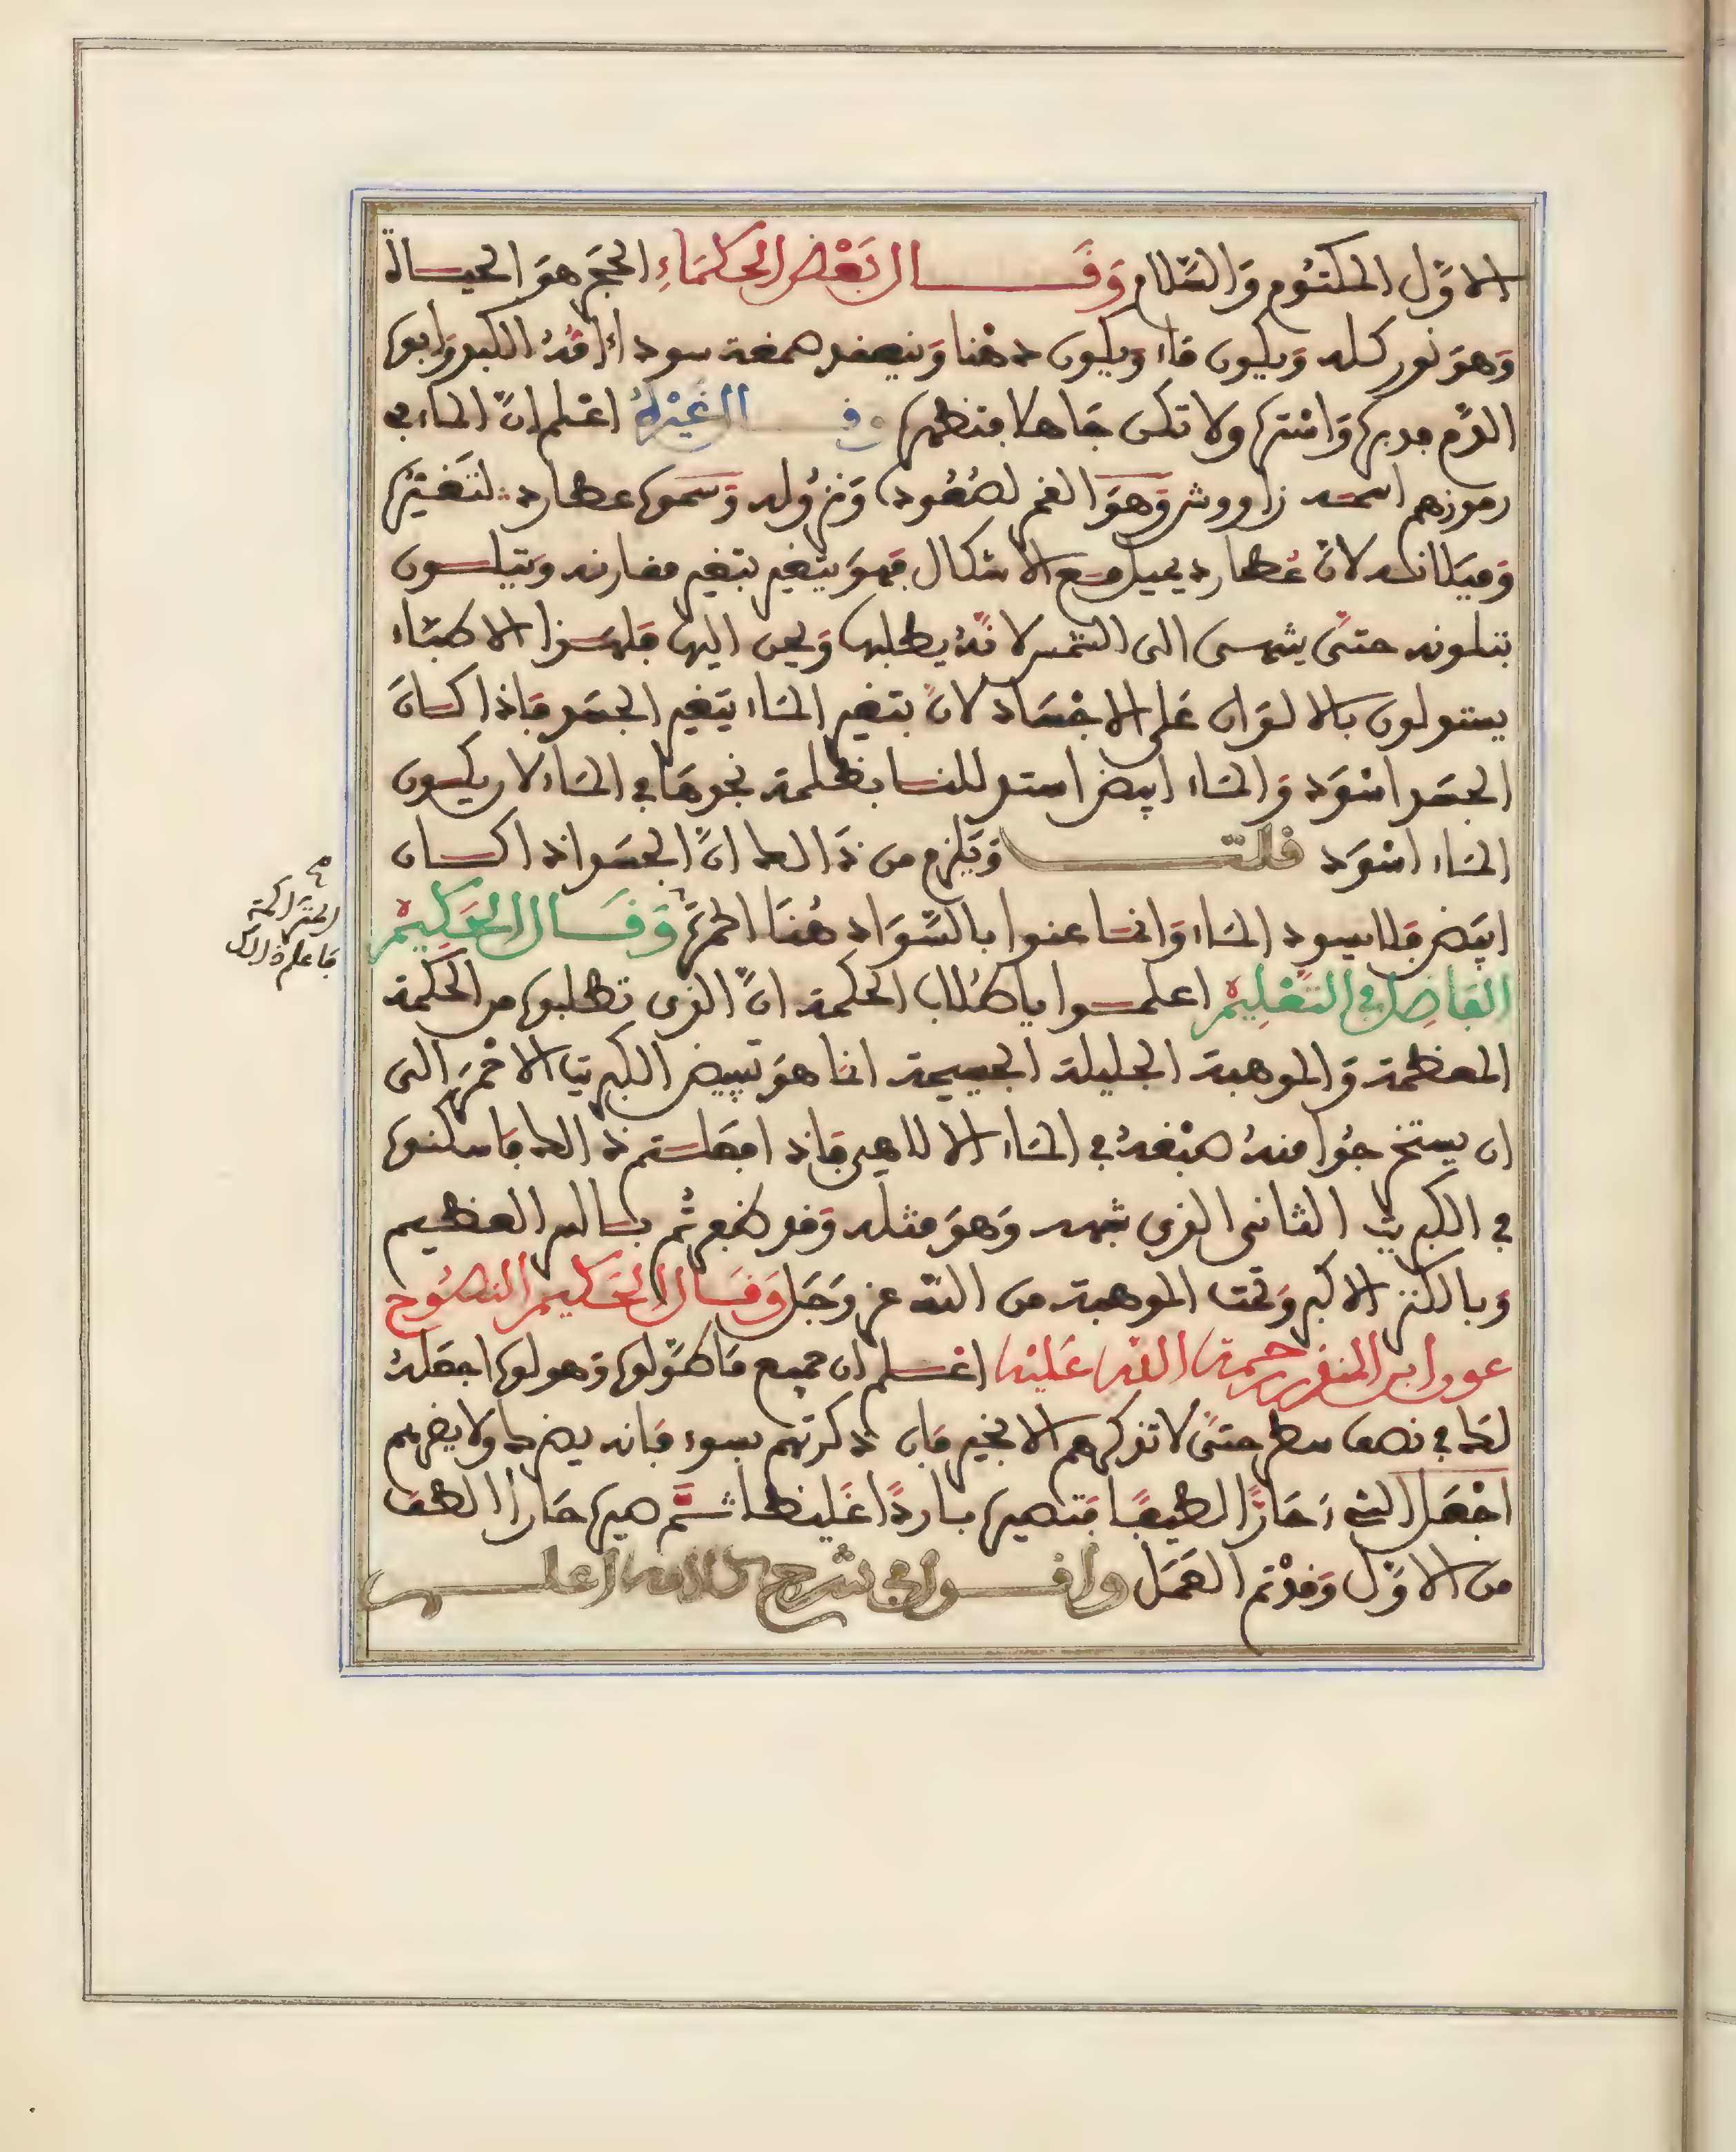 الاوّل المكتوم والسّلام وقال بعض الحكماء الحجر هو الحياة
وهو نور كله ويكون ماء ويكون دهنا وينعقد صمغة سوداء امّه الكبد وابوها
الدّم مدبرها وانثها ولا تكن جاهلا فتظهرها وقال غيره اعلم انّ الماء في
رموزهم اسمه زاووش وهو القمر لصعوده ونزوله وسموه عطارد لتغيّره
وميلانه لانّ عطارد يميل مع الاشكال فهو يتغير بتغير مقارنه ويتلون
بتلونه حتّى يشمسى الى الشمس لانّه يطلبها ويحن اليها فلهذا الاطباء
يستدلون بالالوان على الاجساد لانّ بتغير الماء يتغير الجسد فاذا كان
الجسد اسود والماء ابيض استدللنا بظلمة نجدها في الماء لا ريكون
الماء اسود قلت ويلزم من ذالك انّ الجسد اذا كان
ابيض فلا يسود الماء وانما عنوا بالسّواد هنا الحمرة وقال الحكيم
المتراكمة
فاعلم ذالك
الفاضل في التعليم اعلموا يا طلاب الحكمة انّ الذى تطلبوه من الحكمة
العظمة والموهبة الجليلة الجسيمة انما هو تبييض الكبريت الاحمر الى
ان يستخرجوا منه صبغه في الماء الالاهي فاذا فعلتم ذالك فاسكنوه
في الكبريت الثاني الذى شبهه وهو مثله وقد ظفرتم بالسر العظيم
وبالكنز الاكبر وتمت الموهبة من الله عز وجل وقال الحكيم النصوح
عدد ابن المنذر رحمة الله عليه اعلم ان جميع ما طوّلوه وهولوه اجعله
لك في نصف سطر حتّى لا تذكرهم الا بخير فان ذكرتهم بسوء فانه يضرك ولا يضرهم
اجعل الشيء حارّا لطيفا فتصيره باردا غليظا ثم صيره حارا الطف
من الاوّل وقد تم العمل واقول في شرح كلامه اعلم